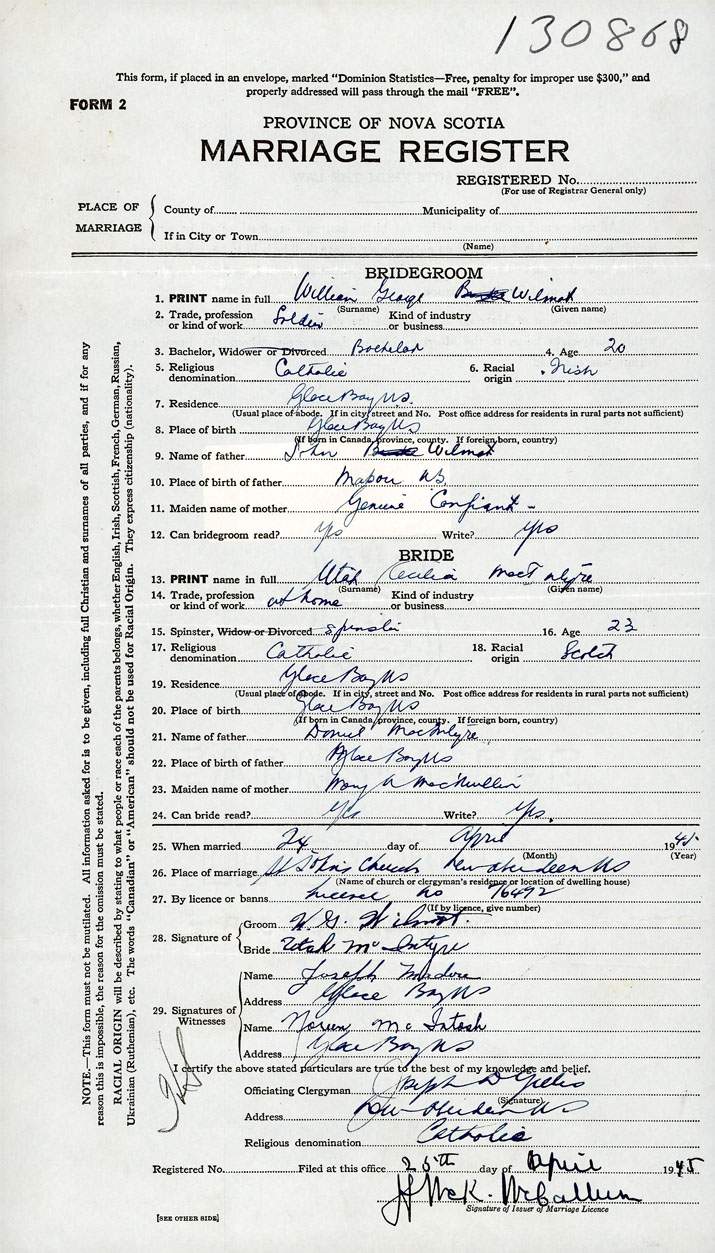 130868
This form, if placed in an envelope, marked "Dominion Statistics—Free, penalty for improper use $300," and
properly addressed will pass through the mail "FREE".
FORM 2
PROVINCE OF NOVA SCOTIA
MARRIAGE REGISTER
REGISTERED No.
(For use of Registrar General only)
PLACE OF MARRIAGE
County of Municipality of
If in City or Town
(Name)
BRIDEGROOM
1. PRINT name in full William George Wilmot
(Surname) (Given name)
2. Trade, profession or kind of work Soldier Kind of industry or business
3. Bachelor, Widower or Divorced Bachelor 4. Age 20
5. Religious denomination Catholic 6. Racial origin Irish
7. Residence Glace Bay NS.
(Usual place of abode. If in city, street and No. Post office address for residents in rural parts not sufficient)
8. Place of birth Glace Bay NS
(If born in Canada, province, county. If foreign born, country)
9. Name of father John Wilmot
10. Place of birth of father Mabou NS
11. Maiden name of mother Confiant
12. Can bridegroom read? Yes Write? Yes
BRIDE
13. PRINT name in full Utah Cecilia MacIntyre
(Surname) (Given name)
14. Trade, profession or kind of work at home Kind of industry or business
15. Spinster, Widow or Divorced Spinster 16. Age 23
17. Religious denomination Catholic 18. Racial origin Scotch
19. Residence Glace Bay NS
(Usual place of abode. If in city, street and No. Post office address for residents in rural parts not sufficient)
20. Place of birth Glace Bay NS
(If born in Canada, province, county. If foreign born, country)
21. Name of father Daniel MacIntyre
22. Place of birth of father Glace Bay NS
23. Maiden name of mother Mary A MacMullin
24. Can bride read? Yes Write? Yes.
25. When married 24 day of April 1945
(Month) (Year)
26. Place of marriage St John's Church New Aberdeen NS
(Name of church or clergyman's residence or location of dwelling house)
27. By licence or banns licence no 76492
(If by licence, give number)
28. Signature of
Groom W. G. Wilmot.
Bride Utah McIntyre
29. Signatures of Witnesses
Name Joseph
Address Glace Bay NS
Name Noreen McIntosh
Address Glace Bay NS
I certify the above stated particulars are true to the best of my knowledge and belief.
Officiating Clergyman Joseph D Gillis
(Signature)
Address New Aberdeen NS
Religious denomination Catholic
Registered No. Filed at this office 25th day of April 1945
McK. McCallum
Signature of Issuer of Marriage Licence
[SEE OTHER SIDE]
NOTE.—This form must not be mutilated. All information asked for is to be given, including full Christian and surnames of all parties, and if for any
reason this is impossible, the reason for the omission must be stated.
RACIAL ORIGIN will be described by stating to what people or race each of the parents belongs, whether English, Irish, Scottish, French, German, Russian,
Ukrainian (Ruthenian), etc. The words "Canadian" or "American" should not be used for Racial Origin. They express citizenship (nationality).